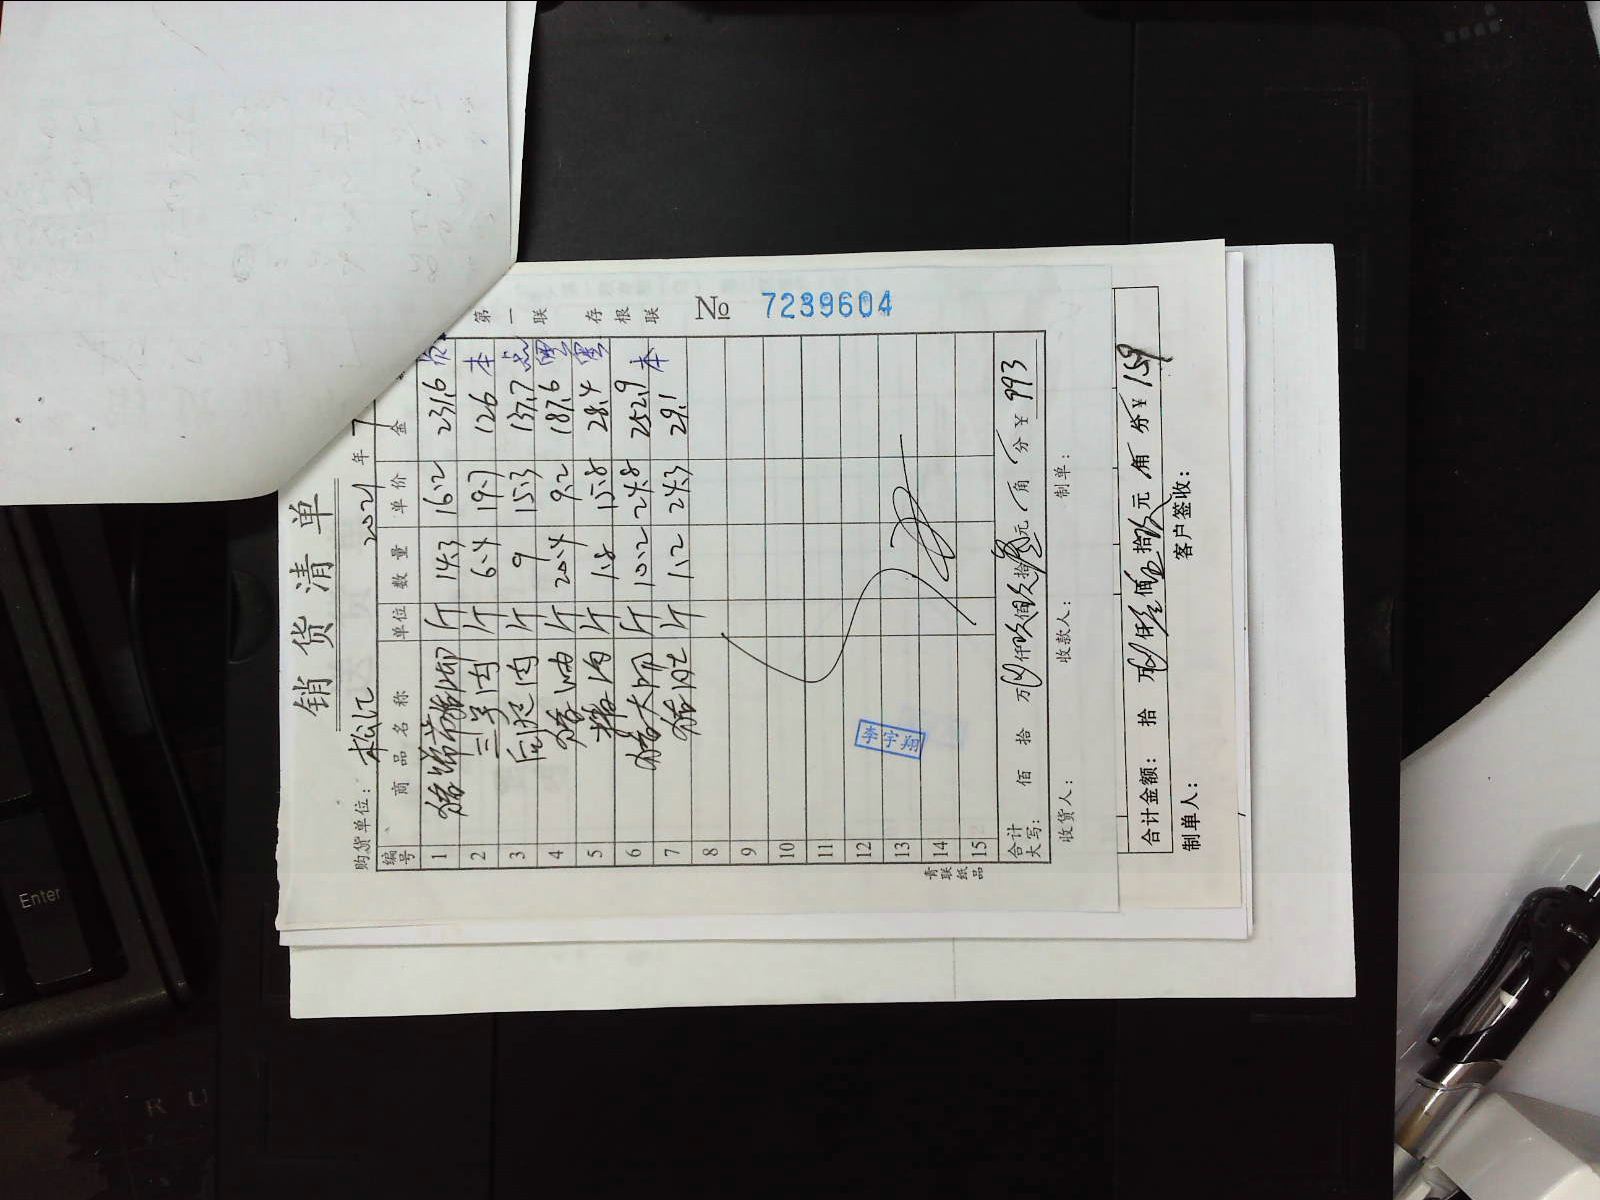 销货清单
购货单位： 松江 2021 年 7
编号 商品名称 单位 数量 单价 金
1 斤 14.3 16.2 231.6
2 三号肉 斤 6.4 19.7 126 本
3 后腿肉 斤 9 15.3 137.7
4 猪油 斤 20.4 9.2 187.6
5 斤 1.8 15.8 28.4
6 猪大排 斤 10.2 24.8 252.9
7 猪肚 斤 1.2 24.3 29.1 本
8
9
10
11
12
13
14
15
合计大写： 佰 拾 万 仟玖佰玖拾叁元 角 分 ¥ 993
收货人： 收款人： 制单：
第一联 存根联
№ 7239604
李宇翔
青联纸品
合计金额： 拾 万 仟壹佰伍拾玖元 角 分 ¥ 159
制单人： 客户签收：
Enter
R U